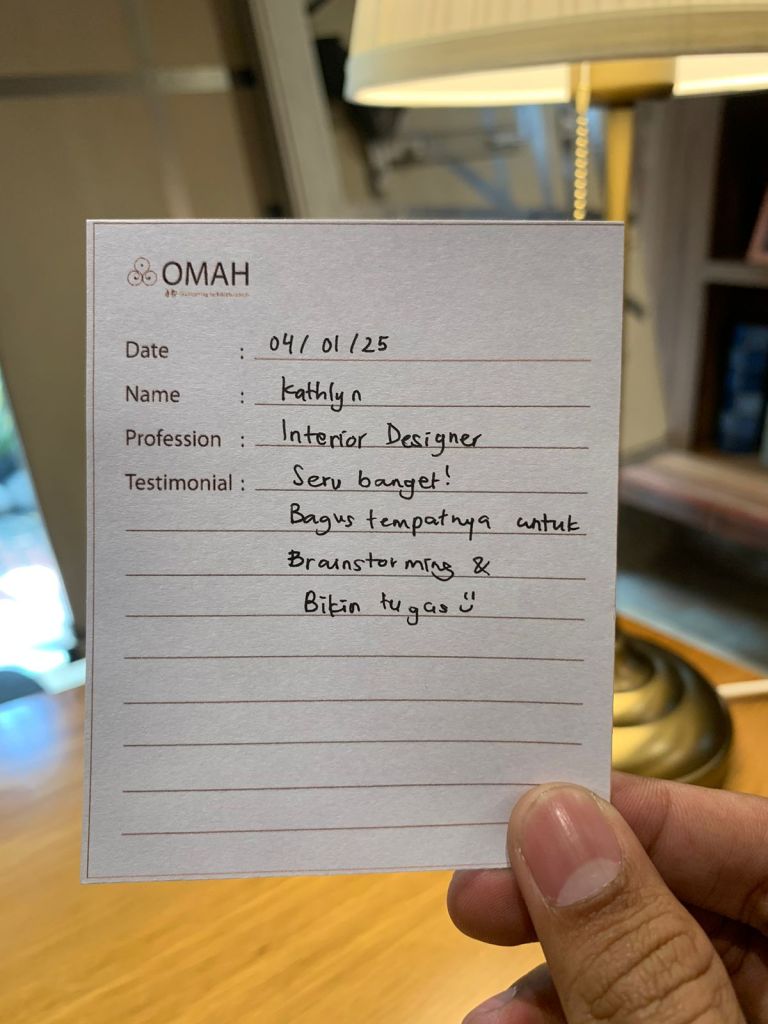 OMAH
Date : 04/01/25
Name : Kathlyn
Profession : Interior Designer
Testimonial : Seru banget!
Bagus tempatnya untuk
Brainstorming &
Bikin tugas